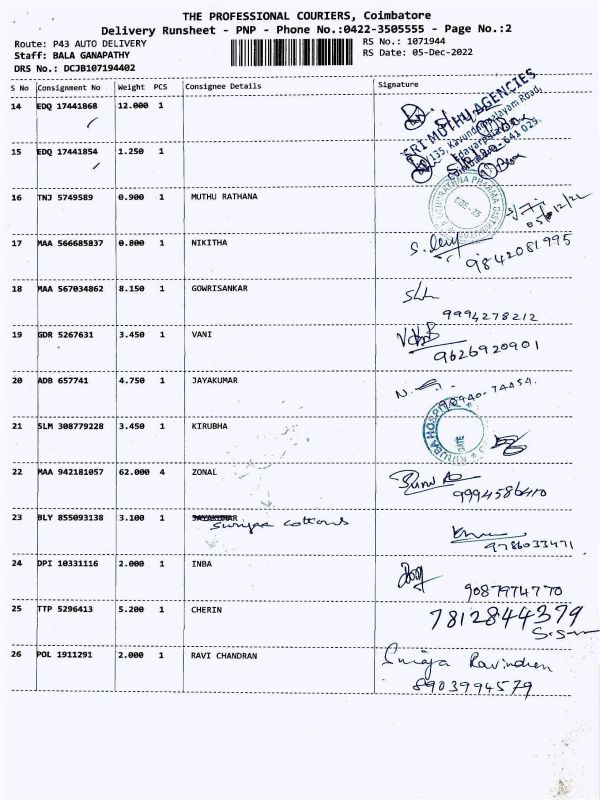 THE PROFESSIONAL COURIERS, Coimbatore
Delivery Runsheet - PNP - Phone No.:0422-3505555 - Page No.:2
Route: P43 AUTO DELIVERY
RS No.: 1071944
Staff: BALA GANAPATHY
RS Date: 05-Dec-2022
DRS No.: DCJB107194402
S No Consignment No Weight PCS Consignee Details Signature
14 EDQ 17441868 12.000 1
SRI MUTHU AGENCIES
15 EDQ 17441854 1.250 1
16 TNJ 5749589 0.900 1 MUTHU RATHANA
17 MAA 566685837 0.800 1 NIKITHA
9842081995
18 MAA 567034862 8.150 1 GOWRISANKAR
9994278212
19 GDR 5267631 3.450 1 VANI
9626920901
20 ADB 657741 4.750 1 JAYAKUMAR
21 SLM 308779228 3.450 1 KIRUBHA
KIRUBA HOSPITAL
22 MAA 942181057 62.000 4 ZONAL
9994586410
23 BLY 855093138 3.100 1 JAYAKUMAR
cottons
9786033471
24 DPI 10331116 2.000 1 INBA
9087974770
25 TTP 5296413 5.200 1 CHERIN
7812844379
26 POL 1911291 2.000 1 RAVI CHANDRAN
8903994579